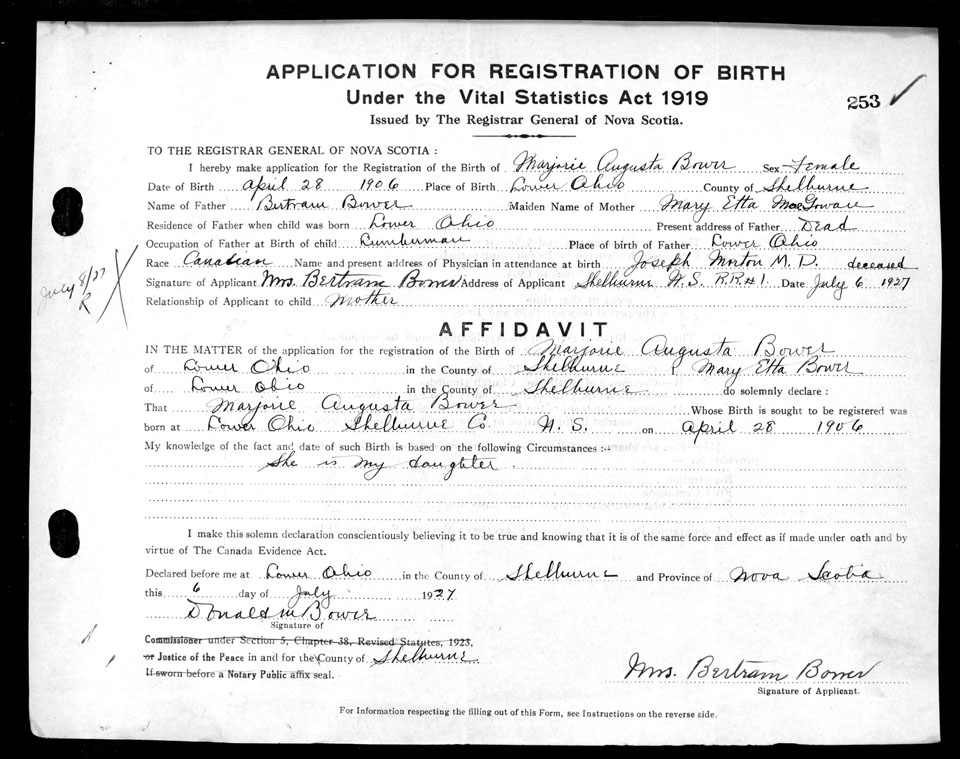 APPLICATION FOR REGISTRATION OF BIRTH
Under the Vital Statistics Act 1919
253
Issued by The Registrar General of Nova Scotia.
TO THE REGISTRAR GENERAL OF NOVA SCOTIA :
I hereby make application for the Registration of the Birth of Marjorie Augusta Bower Sex Female
Date of Birth April 28 1906 Place of Birth Lower Ohio County of Shelburne
Name of Father Bertram Bower Maiden Name of Mother Mary Etta MacGowan
Residence of Father when child was born Lower Ohio Present address of Father Dead
Occupation of Father at Birth of child Lumberman Place of birth of Father Lower Ohio
Race Canadian Name and present address of Physician in attendance at birth Joseph Morton M. D. deceased
Signature of Applicant Mrs. Bertram Bower Address of Applicant Shelburne N. S. R.R.#1. Date July 6 1927
Relationship of Applicant to child Mother
July 8/27
R
AFFIDAVIT
IN THE MATTER of the application for the registration of the Birth of Marjorie Augusta Bower
of Lower Ohio in the County of Shelburne I Mary Etta Bower
of Lower Ohio in the County of Shelburne do solemnly declare :
That Marjorie Augusta Bower Whose Birth is sought to be registered was
born at Lower Ohio Shelburne Co. N. S. on April 28 1906
My knowledge of the fact and date of such Birth is based on the following Circumstances :-
She is my daughter.
I make this solemn declaration conscientiously believing it to be true and knowing that it is of the same force and effect as if made under oath and by
virtue of The Canada Evidence Act.
Declared before me at Lower Ohio in the County of Shelburne and Province of Nova Scotia
this 6 day of July 1927
Donald M Bower
Signature of
Commissioner under Section 5, Chapter 38, Revised Statutes, 1923.
or Justice of the Peace in and for the County of Shelburne.
If sworn before a Notary Public affix seal.
Mrs. Bertram Bower
Signature of Applicant.
For Information respecting the filling out of this Form, see Instructions on the reverse side.